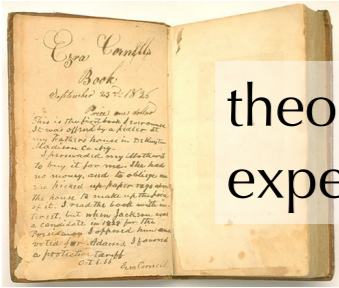 Ezra Cornell's
Book
September 23rd 1825
Price one dollar
This is the first book I ever owned
It was offered by a pedler at
my Father's house in DeRuyter
Madison Co. N.Y.
I persuaded my Mother
to buy it for me. She had
no money, and to oblige me
she picked up paper rags about
the house to make up the price
of it. I read the book with in-
terest, but when Jackson was
a candidate in 1828 for the
Presidency I opposed him and
voted for Adams I favored
a protective tariff
Ezra Cornell
theo
expe